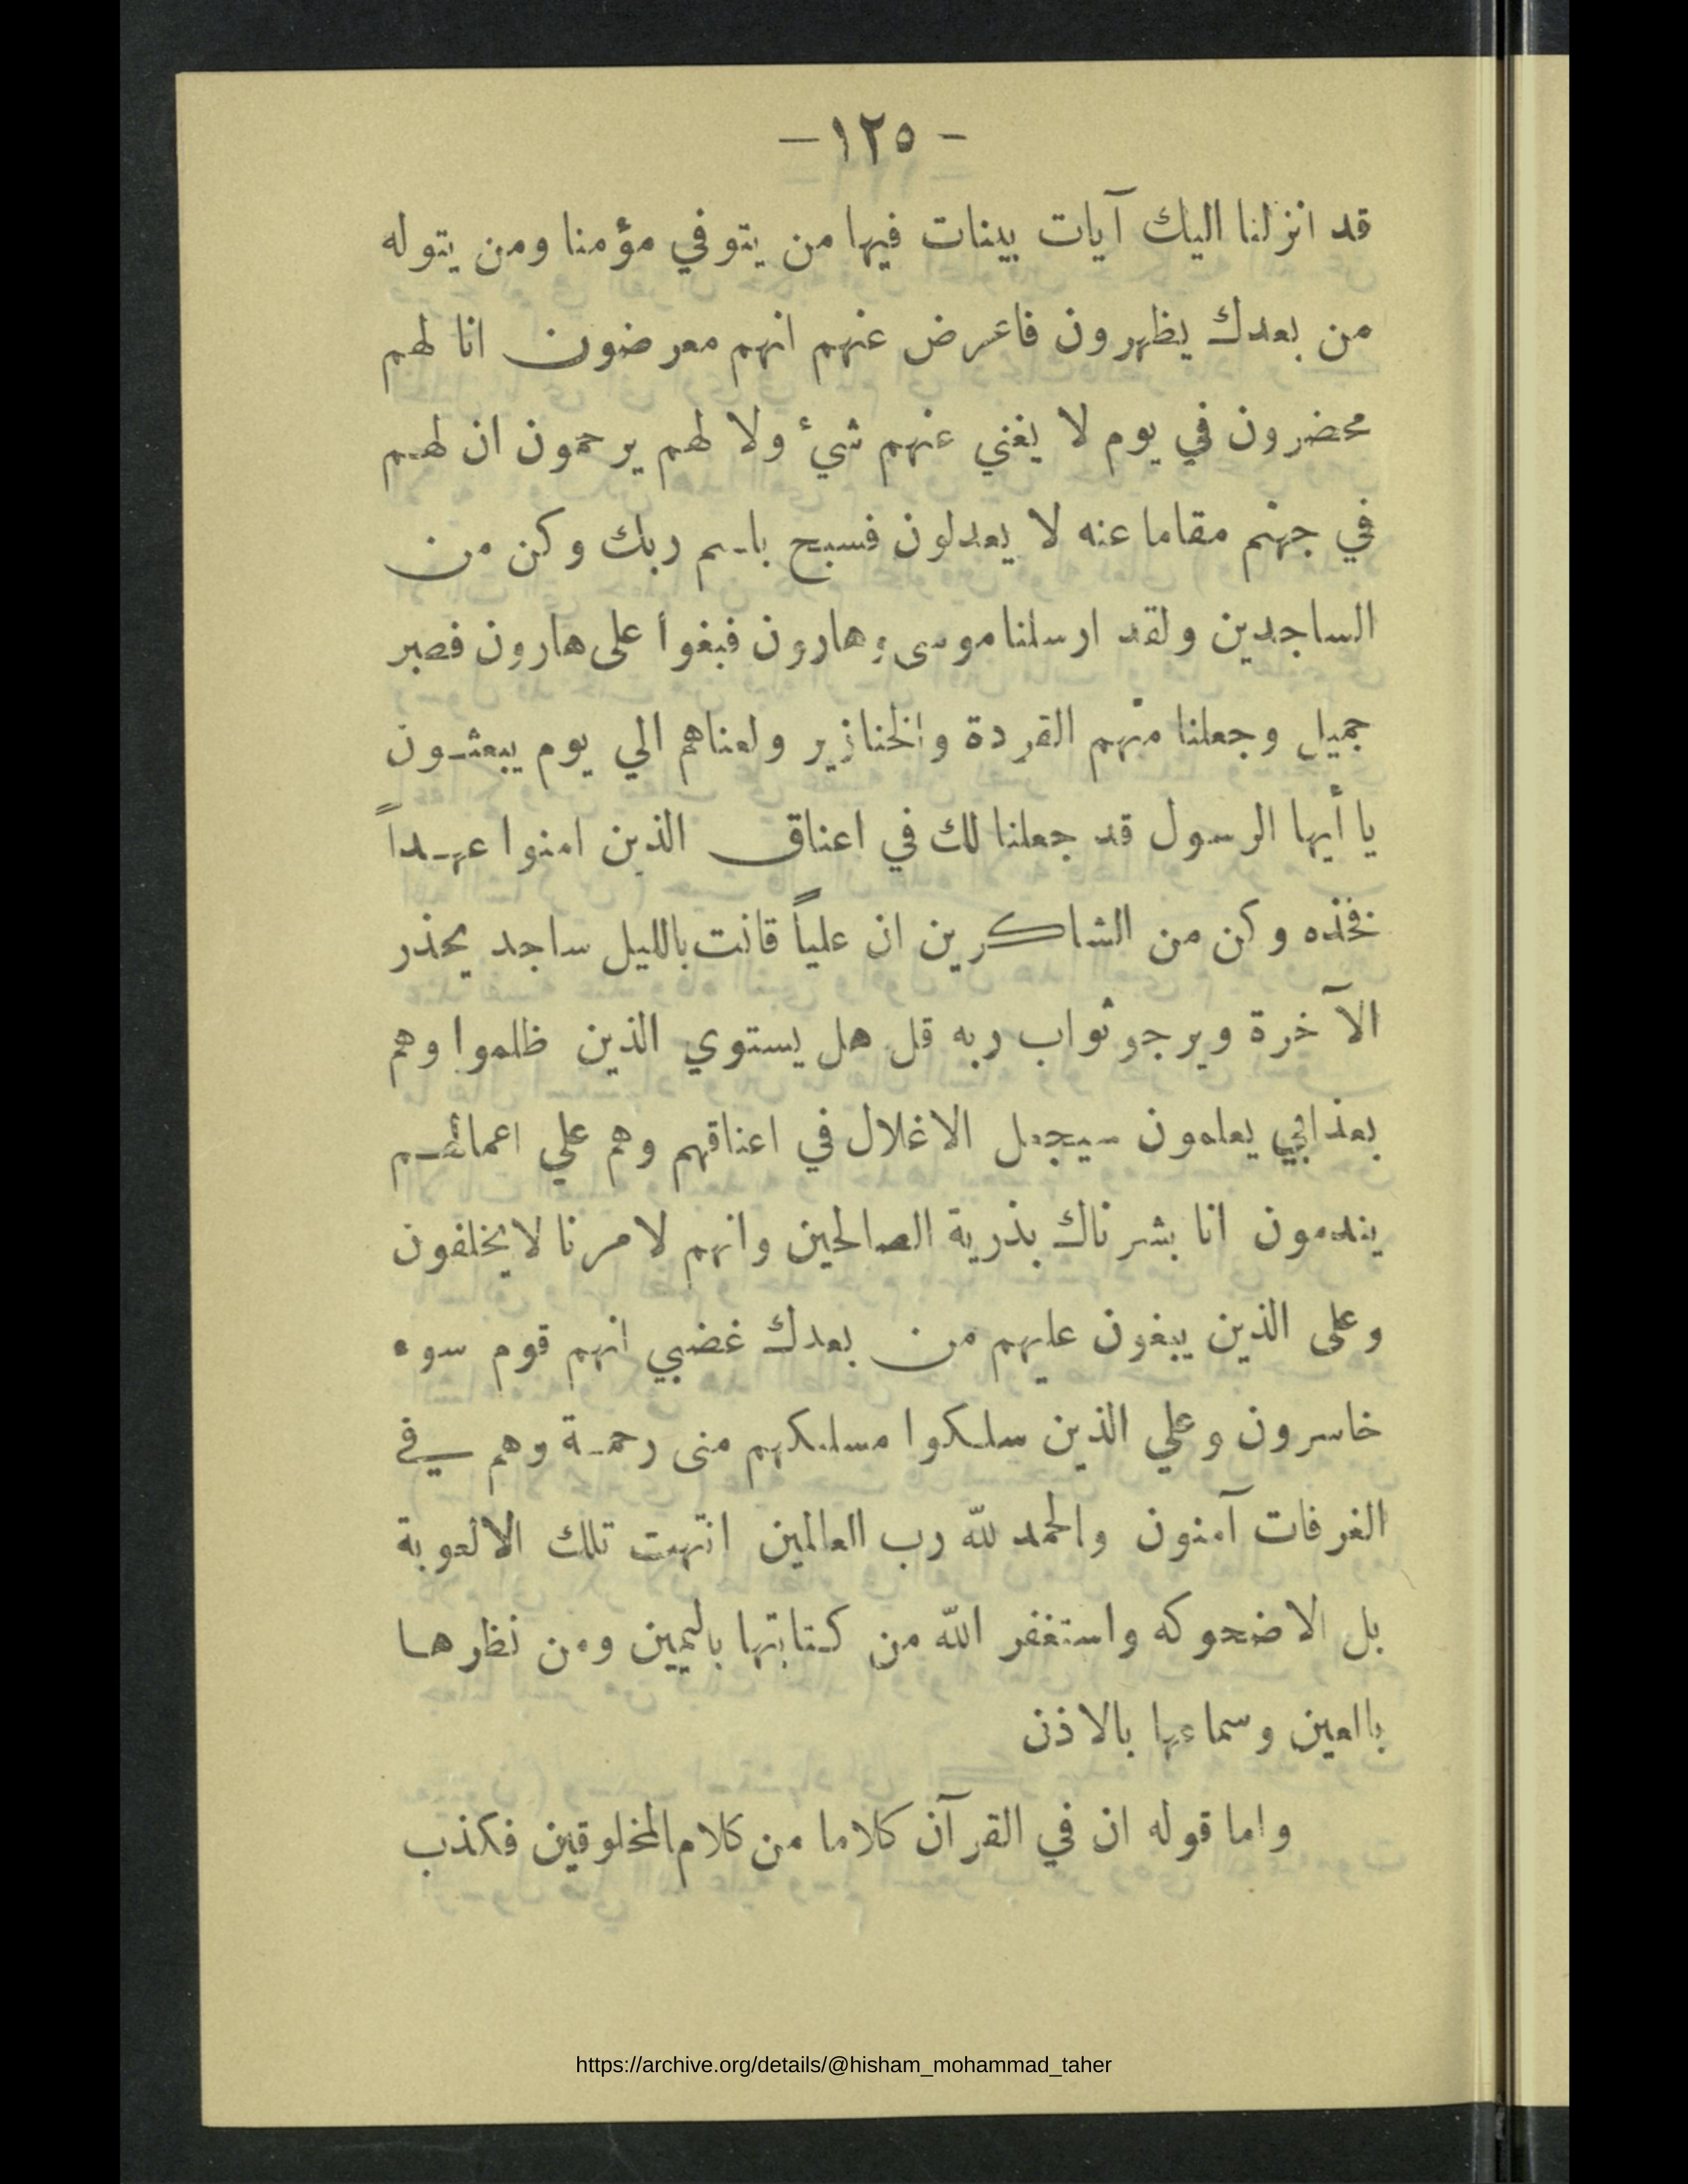 - ١٢٥ -
قد انزلنا اليك آيات بينات فيها من يتوفي مؤمنا ومن يتوله
من بعدك يظهرون فاعرض عنهم انهم معرضون انا لهم
محضرون في يوم لا يغني عنهم شيء ولا لهم يرحمون ان لهم
في جهنم مقاما عنه لا يعدلون فسبح باسم ربك وكن من
الساجدين ولقد ارسلنا موسى وهارون فبغوا على هارون فصبر
جميل وجعلنا منهم القردة والخنازير ولعناهم الي يوم يبعثون
يا أيها الرسول قد جعلنا لك في اعناق الذين امنوا عهداً
فخذه وكن من الشاكرين ان علياً قانت بالليل ساجد يحذر
الآخرة ويرجو ثواب ربه قل هل يستوي الذين ظلموا وهم
بعذابي يعلمون سيجعل الاغلال في اعناقهم وهم علي اعمالهم
يندمون انا بشرناك بذرية الصالحين وانهم لامرنا لا يخلفون
وعلى الذين يبغون عليهم من بعدك غضبي انهم قوم سوء
خاسرون وعلي الذين سلكوا مسلكهم منى رحمة وهم في
الغرفات آمنون والحمد لله رب العالمين انتهت تلك الالعوبة
بل الاضحوكه واستغفر الله من كتابتها باليمين ومن نظرها
بالعين وسماعها بالاذن
واما قوله ان في القرآن كلاما من كلام المخلوقين فكذب
https://archive.org/details/@hisham_mohammad_taher